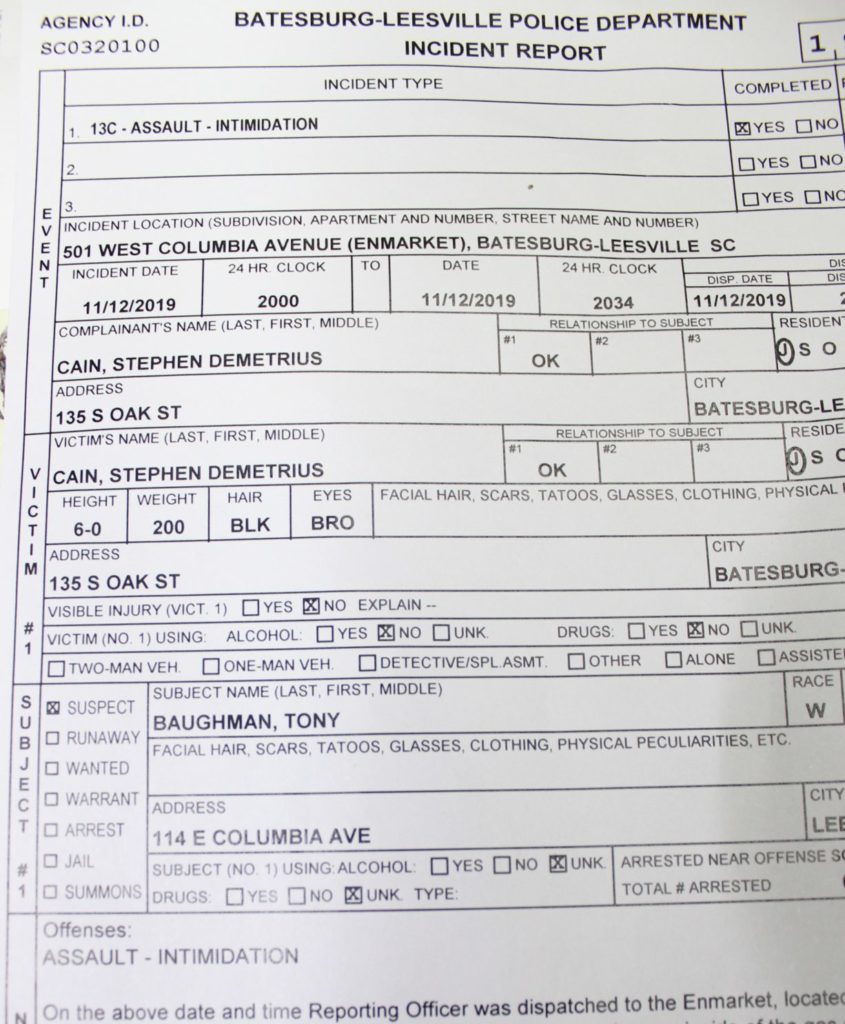 AGENCY I.D.
SC0320100
BATESBURG-LEESVILLE POLICE DEPARTMENT
INCIDENT REPORT
1
INCIDENT TYPE COMPLETED
1. 13C - ASSAULT - INTIMIDATION ☒YES ☐NO
2. ☐YES ☐NO
3. ☐YES ☐NO
EVENT
INCIDENT LOCATION (SUBDIVISION, APARTMENT AND NUMBER, STREET NAME AND NUMBER)
501 WEST COLUMBIA AVENUE (ENMARKET), BATESBURG-LEESVILLE SC
INCIDENT DATE 24 HR. CLOCK TO DATE 24 HR. CLOCK DISP. DATE
11/12/2019 2000 11/12/2019 2034 11/12/2019
COMPLAINANT'S NAME (LAST, FIRST, MIDDLE) RELATIONSHIP TO SUBJECT RESIDEN
CAIN, STEPHEN DEMETRIUS #1 OK #2 #3 J S O
ADDRESS CITY
135 S OAK ST BATESBURG-LE
VICTIM #1
VICTIM'S NAME (LAST, FIRST, MIDDLE) RELATIONSHIP TO SUBJECT RESIDE
CAIN, STEPHEN DEMETRIUS #1 OK #2 #3 J S
HEIGHT WEIGHT HAIR EYES FACIAL HAIR, SCARS, TATOOS, GLASSES, CLOTHING, PHYSICAL
6-0 200 BLK BRO
ADDRESS CITY
135 S OAK ST BATESBURG-
VISIBLE INJURY (VICT. 1) ☐YES ☒NO EXPLAIN --
VICTIM (NO. 1) USING: ALCOHOL: ☐YES ☒NO ☐UNK. DRUGS: ☐YES ☒NO ☐UNK.
☐TWO-MAN VEH. ☐ONE-MAN VEH. ☐DETECTIVE/SPL.ASMT. ☐OTHER ☐ALONE ☐ASSISTE
SUBJECT #1
☒ SUSPECT
☐ RUNAWAY
☐ WANTED
☐ WARRANT
☐ ARREST
☐ JAIL
☐ SUMMONS
SUBJECT NAME (LAST, FIRST, MIDDLE) RACE
BAUGHMAN, TONY W
FACIAL HAIR, SCARS, TATOOS, GLASSES, CLOTHING, PHYSICAL PECULIARITIES, ETC.
ADDRESS CITY
114 E COLUMBIA AVE LEE
SUBJECT (NO. 1) USING: ALCOHOL: ☐YES ☐NO ☒UNK. ARRESTED NEAR OFFENSE SC
DRUGS: ☐YES ☐NO ☒UNK. TYPE: TOTAL # ARRESTED
Offenses:
ASSAULT - INTIMIDATION
N
On the above date and time Reporting Officer was dispatched to the Enmarket, located